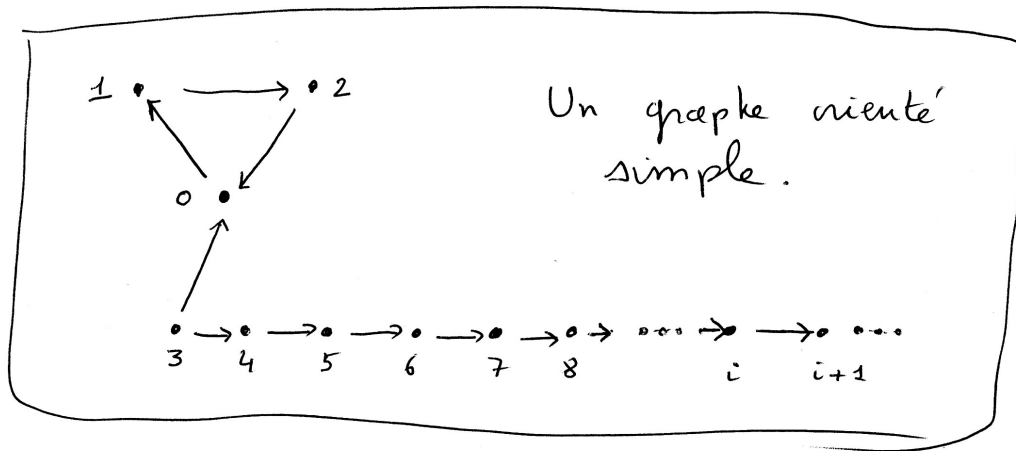 1 2
Un graphe orienté
simple.
0
3 4 5 6 7 8 i i+1